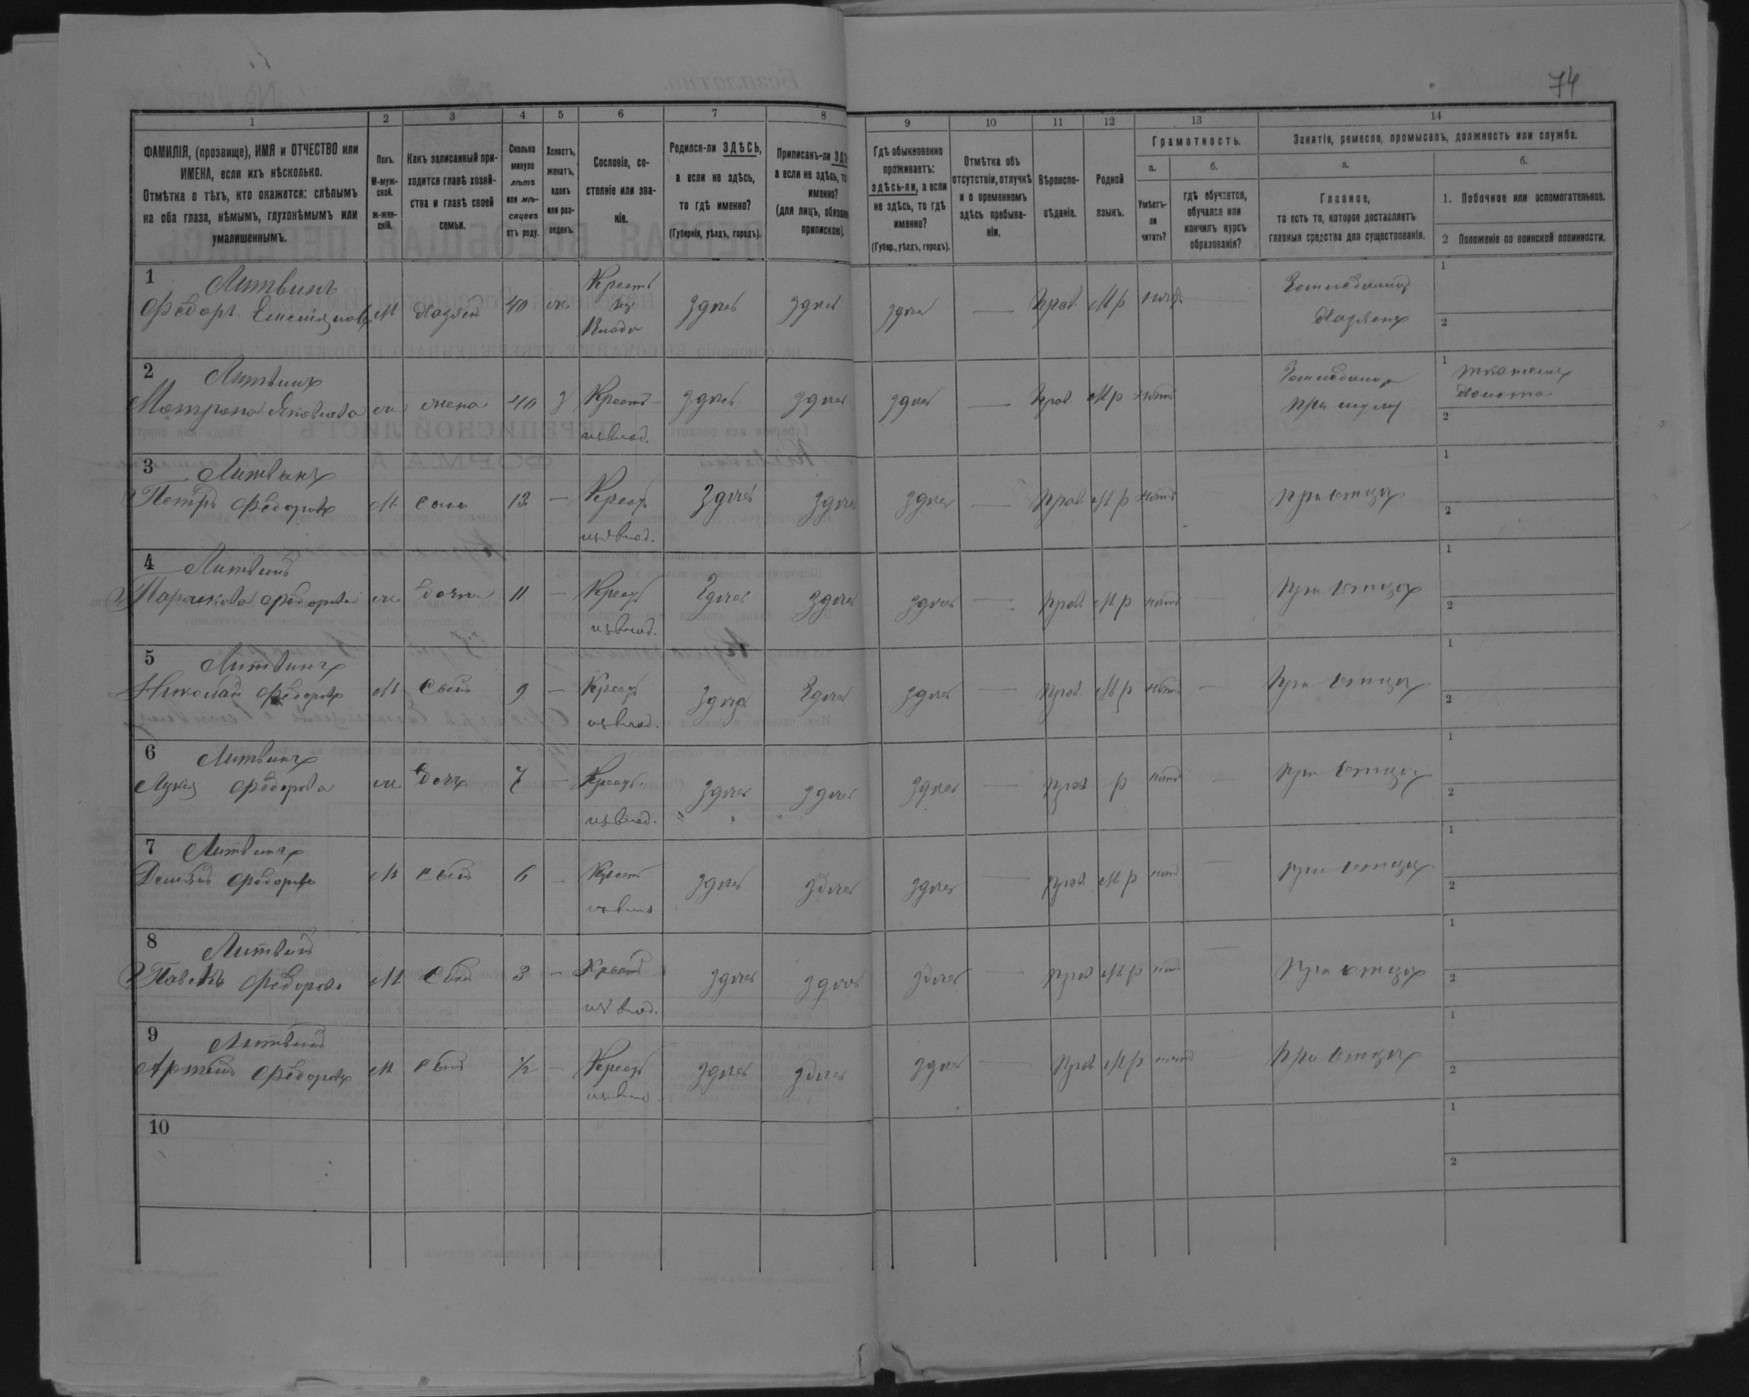 74
1 2 3 4 5 6 7 8 9 10 11 12 13 14
ФАМИЛІЯ, (прозвище), ИМЯ и ОТЧЕСТВО или
ИМЕНА, если ихъ нѣсколько.
Отмѣтка о тѣхъ, кто окажется: слѣпымъ
на оба глаза, нѣмымъ, глухонѣмымъ или
умалишеннымъ.
Полъ.
М-муж-
ской.
ж-жен-
скій.
Какъ записанный при-
ходится главѣ хозяй-
ства и главѣ своей
семьи.
Сколько
минуло
лѣтъ
или мѣ-
сяцевъ
отъ роду.
Холостъ,
женатъ,
вдовъ
или раз-
веденъ.
Сословіе, со-
стояніе или зва-
ніе.
Родился-ли ЗДѢСЬ,
а если не здѣсь,
то гдѣ именно?
(Губернія, уѣздъ, городъ).
Приписанъ-ли
а если не здѣсь, то
именно?
(для лицъ,
припискою).
Гдѣ обыкновенно
проживаетъ:
здѣсь-ли, а если
не здѣсь, то гдѣ
именно?
(Губер., уѣздъ, городъ).
Отмѣтка объ
отсутствіи, отлучкѣ
и о временномъ
здѣсь пребыва-
ніи.
Вѣроиспо-
вѣданіе.
Родной
языкъ.
Грамотность.
а. б.
Умѣетъ-
ли
читать?
гдѣ обучается,
обучался или
кончилъ курсъ
образованія?
Занятіе, ремесло, промыселъ, должность или служба.
а. б.
Главное,
то есть то, которое доставляетъ
главныя средства для существованія.
1. Побочное или вспомогательное.
2 Положеніе по воинской повинности.
1 Литвинъ
Федоръ М хозяинъ 40 ж Крест. из здѣсь здѣсь здѣсь — Прав. М р
Хозяинъ
1
2
2 Литвинъ
Матрона Яковлева ж жена 40 з Крест. здѣсь здѣсь здѣсь — Прав М р нѣтъ
из влад.
при мужѣ
1
2
3 Литвинъ
Петръ Федоровъ М сынъ 12 — Крест здѣсь здѣсь здѣсь — Прав М р нѣтъ при отцѣ
из влад.
1
2
4 Литвинъ
Парасковия Федорова ж дочка 11 — Крест здѣсь здѣсь здѣсь — Прав. М р нѣтъ — при отцѣ
из влад.
1
2
5 Литвинъ
Николай Федоровъ М сынъ 9 — Крест здѣсь здѣсь здѣсь — Прав. М р нѣтъ — при отцѣ
из влад.
1
2
6 Литвинъ
Федорова ж дочь 7 — Крест здѣсь здѣсь здѣсь — прав р нѣтъ — при отцѣ
из влад.
1
2
7 Литвинъ
Федоровъ М сынъ 6 — Крест здѣсь здѣсь здѣсь — прав. М р нѣтъ — при отцѣ
1
2
8 Литвинъ
Федоровъ М сынъ 3 — Крест здѣсь здѣсь здѣсь — прав М р нѣтъ — при отцѣ
из влад.
1
2
9 Литвинъ
Федоровъ М сынъ ½ — Крест здѣсь здѣсь здѣсь — прав М р нѣтъ — при отцѣ
1
2
10
1
2